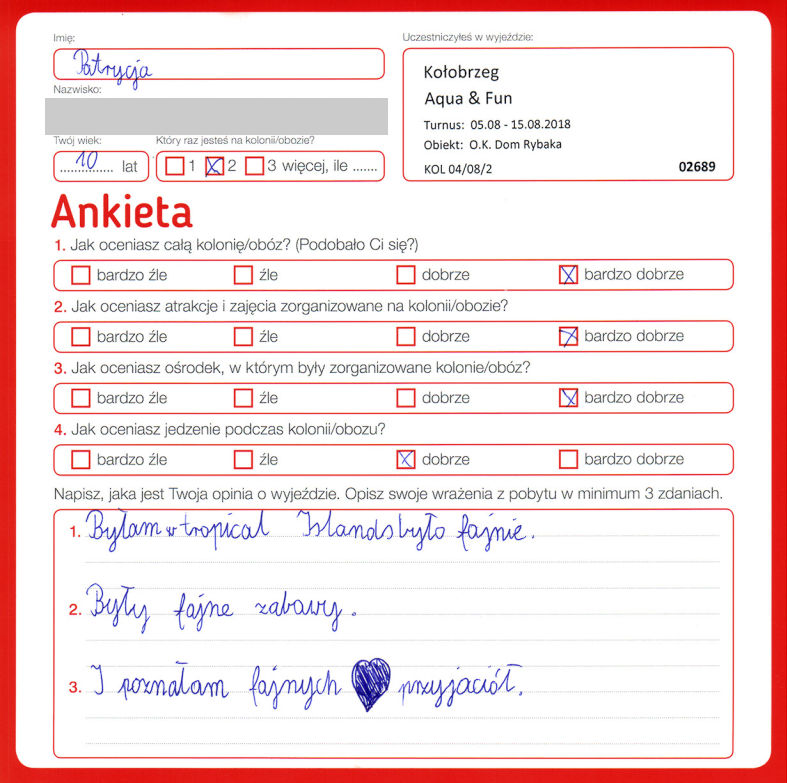 Imię:
Patrycja
Nazwisko:
Twój wiek:
10 lat
Który raz jesteś na kolonii/obozie?
1 2 3 więcej, ile .......
Uczestniczyłeś w wyjeździe:
Kołobrzeg
Aqua & Fun
Turnus: 05.08 - 15.08.2018
Obiekt: O.K. Dom Rybaka
KOL 04/08/2 02689
Ankieta
1. Jak oceniasz całą kolonię/obóz? (Podobało Ci się?)
bardzo źle źle dobrze bardzo dobrze
2. Jak oceniasz atrakcje i zajęcia zorganizowane na kolonii/obozie?
bardzo źle źle dobrze bardzo dobrze
3. Jak oceniasz ośrodek, w którym były zorganizowane kolonie/obóz?
bardzo źle źle dobrze bardzo dobrze
4. Jak oceniasz jedzenie podczas kolonii/obozu?
bardzo źle źle dobrze bardzo dobrze
Napisz, jaka jest Twoja opinia o wyjeździe. Opisz swoje wrażenia z pobytu w minimum 3 zdaniach.
1. Byłam w tropical Islands było fajnie.
2. Były fajne zabawy.
3. I poznałam fajnych przyjaciół.